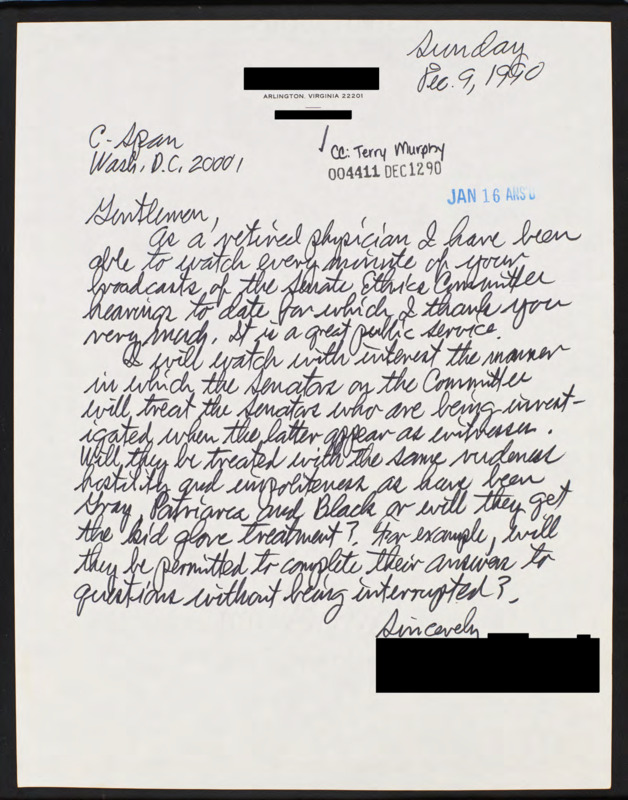 Sunday
Dec. 9, 1990
ARLINGTON, VIRGINIA 22201
C-Span
Wash, D.C. 20001
CC: Terry Murphy
004411 DEC 12 90
JAN 16 ANS'D
Gentlemen,
As a retired physician I have been
able to watch every minute of your
broadcasts of the Senate Ethics Committee
hearings to date for which I thank you
very much. It is a great public service.
I will watch with interest the manner
in which the Senators on the Committee
will treat the Senators who are being invest-
igated, when the latter appear as witnesses.
Will they be treated with the same rudeness
hostility and impoliteness as have been
Gray, Patriarca and Black or will they get
the kid glove treatment? For example, will
they be permitted to complete their answers to
questions without being interrupted?
Sincerely